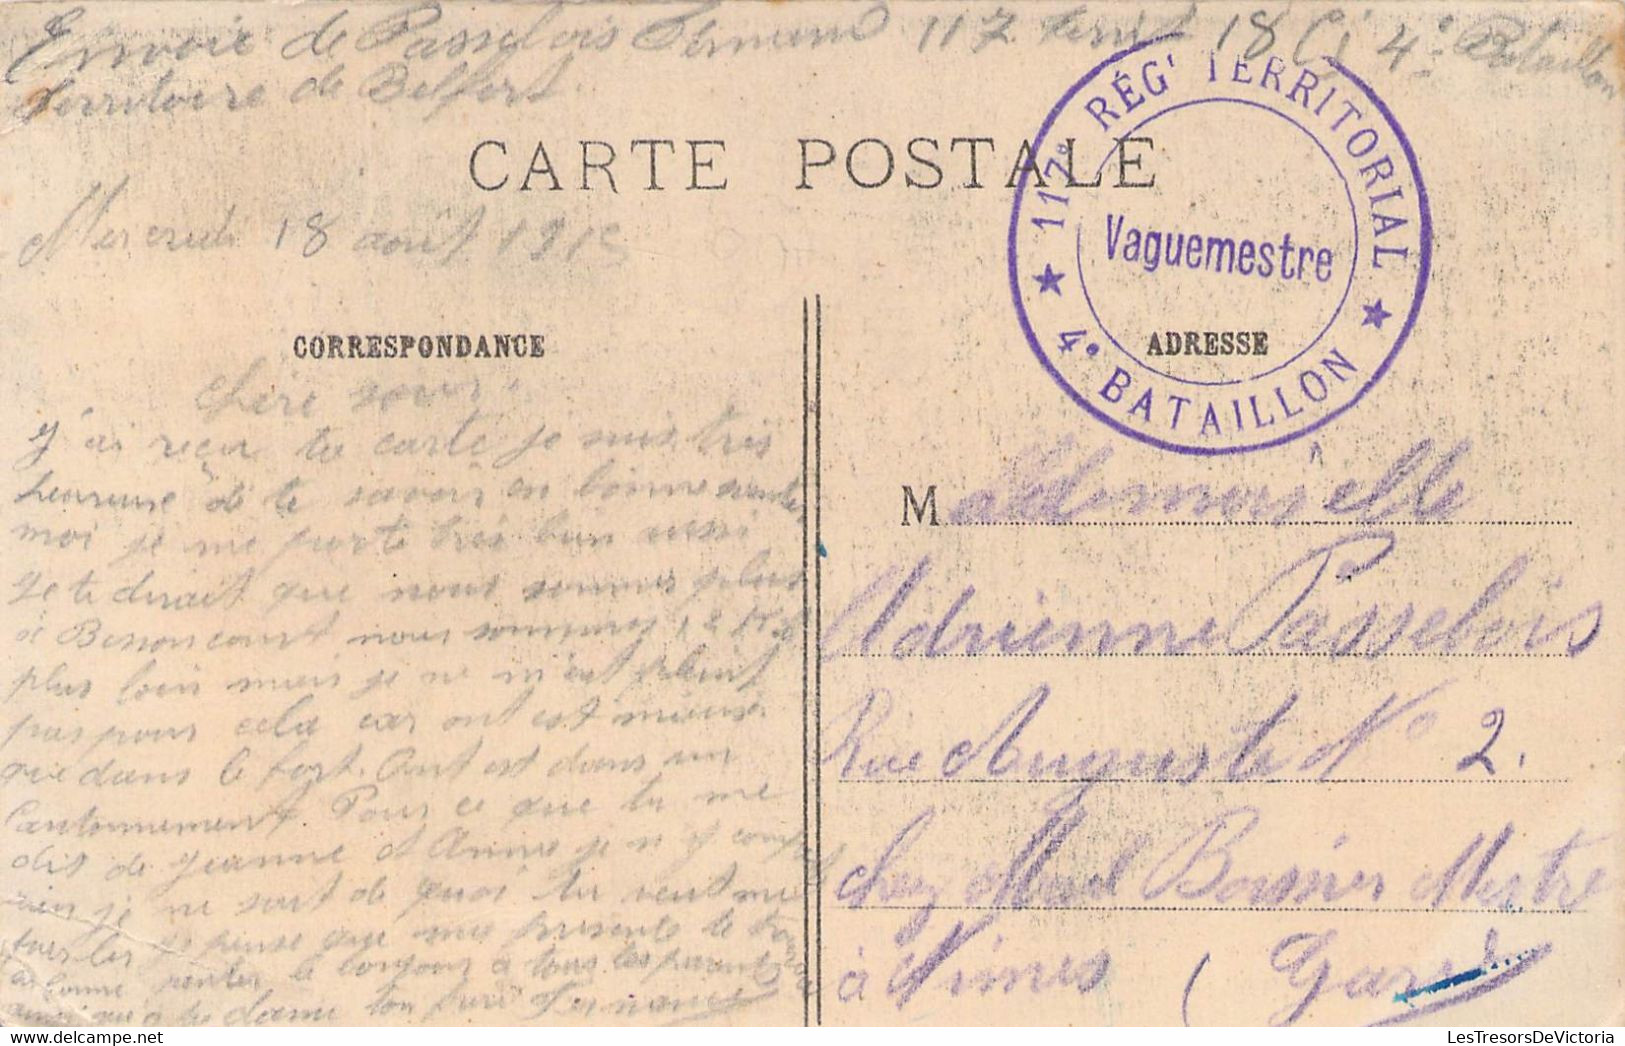 Envoie de Passebois Fernand 117 Territ 18 Ci 4e Bataillon
Territoire de Belfort
117e RÉGt TERRITORIAL
Vaguemestre
4e BATAILLON
CARTE POSTALE
Mercredi 18 août 1915
CORRESPONDANCE
ADRESSE
chère soeur.
J'ai reçu ta carte je suis très
heureuse de te savoir en bonne santé
moi je me porte très bien aussi
je te dirait que nous sommes plus
à Bessoncourt nous sommes
plus loin mais je ne m'est plaint
pas pour cela car ont est mieux
que dans le fort. Ont est dans un
Cantonnement Pour ce que tu me
dit de Jeanne et Anna je n'y comp
rien je ne sort de quoi tu veut me
parler je pense que me présente te trouve
en bonne santée le bonjour à tous les parents
ainsi que à tes dame ton frère Fernand
Mademoiselle
Adrienne Passebois
Rue Auguste No 2.
chez Mad Bosnier Mestre
à Nimes (Gard)
LesTresorsDeVictoria.com